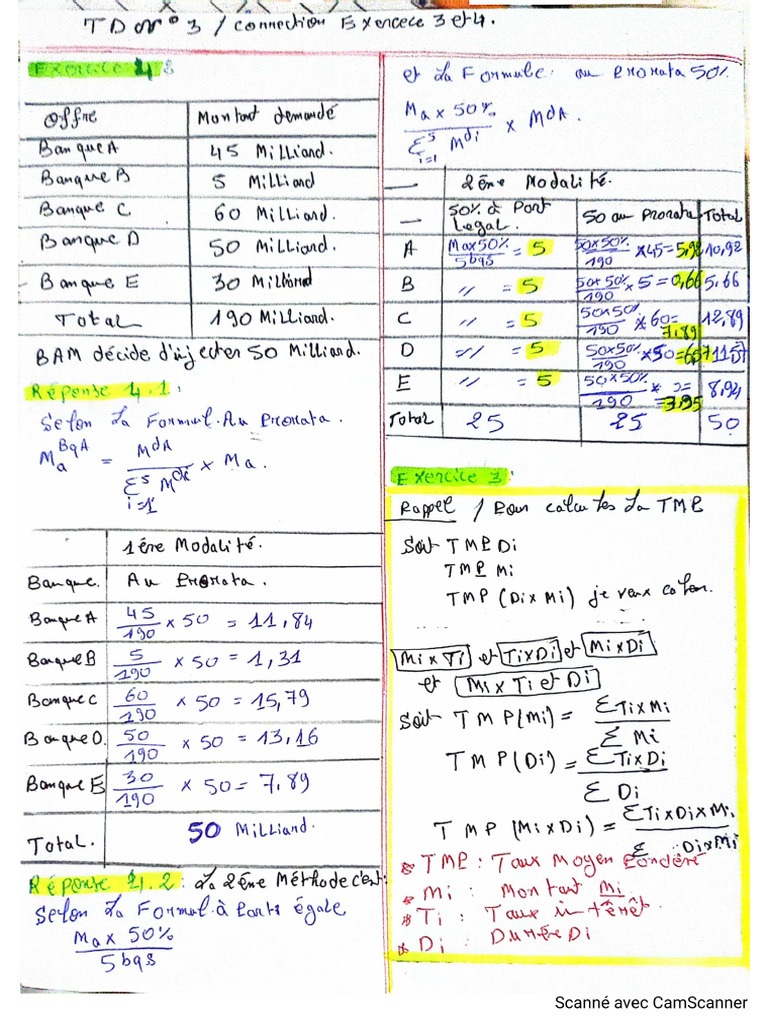 TD N° 3 / Connection Exercice 3 et 4.
Exercice 4 :
Offre Montant demandé
Banque A 45 Milliand.
Banque B 5 Milliand
Banque C 60 Milliand.
Banque D 50 Milliand.
Banque E 30 Milliand
Total 190 Milliand.
BAM décide d'injecter 50 Milliand.
Réponse 4.1:
Selon la Formul. Au Prorata.
Ma^BqA = MdA / Σ^5 i=1 Mdi × Ma.
1ére Modalité.
Banque. Au Prorata.
Banque A 45/190 × 50 = 11,84
Banque B 5/190 × 50 = 1,31
Banque C 60/190 × 50 = 15,79
Banque D. 50/190 × 50 = 13,16
Banque E 30/190 × 50 = 7,89
Total. 50 Milliand.
Réponse 4.2: la 2éme Méthode c'est:
Selon la Formul à Parts égale
Ma x 50% / 5 bqs
et la Formule: au Prorata 50%.
Ma x 50% / Σ^5 i=1 Mdi × MdA.
2éme Modalité.
50% à Part Legal. 50 au Prorata Total
A Max50%/5bqs = 5 50x50%/190 ×45=5,92 10,92
B " = 5 50x50%/190 ×5=0,66 5,66
C " = 5 50x50%/190 ×60=7,89 12,89
D " = 5 50x50%/190 ×50=6,57 11,57
E " = 5 50x50%/190 × =3,95 8,94
Total 25 25 50
Exercice 3:
Rappel / Pour calculer la TMP
Soit TMP Di
TMP Mi
TMP (Di x Mi) je veux
Mi x Ti et Ti x Di et Mi x Di
et Mi x Ti et Di
Soit TMP(Mi) = ΣTi x Mi / Σ Mi
TMP(Di) = ΣTi x Di / Σ Di
TMP (Mi x Di) = ΣTi x Di x Mi / Σ Di x Mi
* TMP : Taux Moyen Pondéré
* Mi : Montant Mi
* Ti : Taux intérêt.
* Di : Durée Di
Scanné avec CamScanner